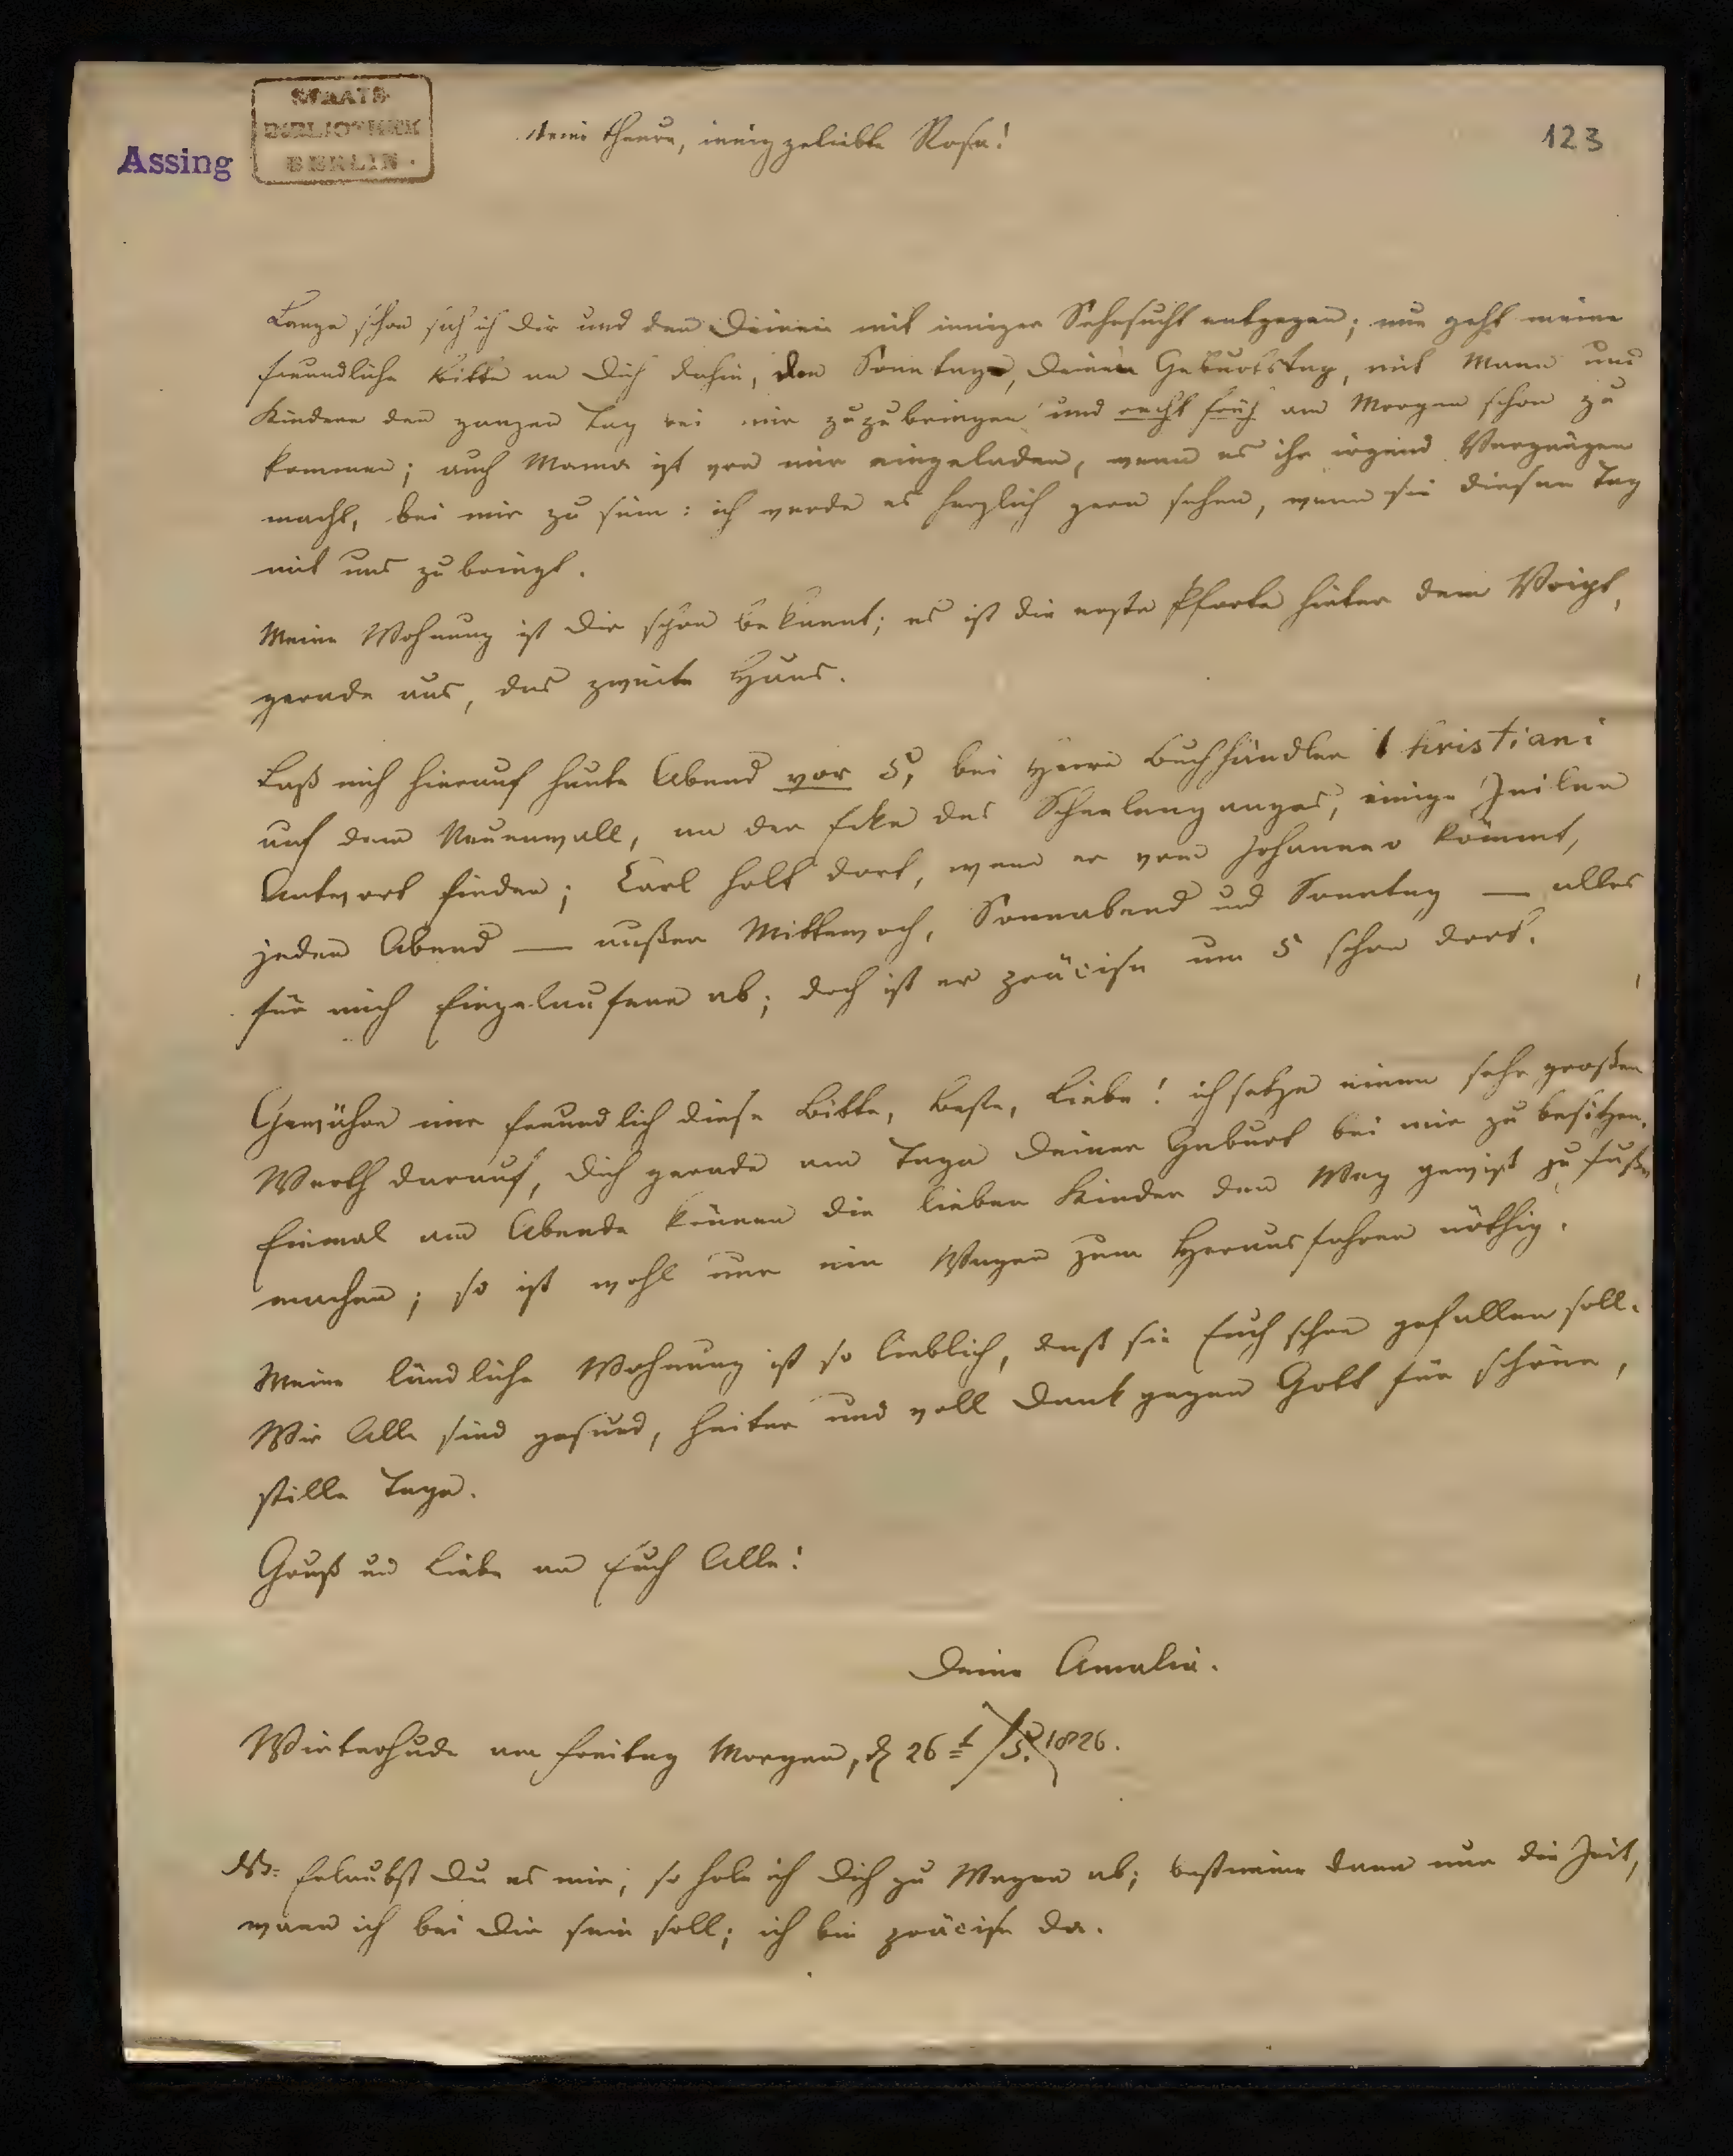 STAATS-
BIBLIOTHEK
BERLIN.
Assing
123
Meine theure, inniggeliebte Rosa!
Lange schon seh' ich Dir und den Deinen mit inniger Sehnsucht entgegen; nun geht meine
freundliche Bitte an Dich dahin, den Sonntag, Deinen Geburtstag, mit Mann und
Kindern den ganzen Tag bei mir zuzubringen und recht früh am Morgen schon zu
kommen; auch Mama ist von mir eingeladen, wenn es ihr irgend Vergnügen
macht, bei mir zu sein: ich werde es herzlich gern sehen, wenn sie diesen Tag
mit uns zubringt.
Meine Wohnung ist Dir schon bekannt; es ist die erste Pforte hinter dem Voigt,
gerade aus, das zweite Haus.
Laß mich hierauf heute Abend vor 5, bei Herrn Buchhändler Christiani
auf dem Neuenwall, an der Ecke des Scheelenganges, einige Zeilen
Antwort finden; Carl holt dort, wenn er vom Johanneo kömmt,
jeden Abend — außer Mittewoch, Sonnabend und Sonntag — alles
für mich Eingelaufene ab; doch ist er präcise um 5 schon dort.
Gewähre mir freundlich diese Bitte, Beste, Liebe! ich setze einen sehr großen
Werth darauf, Dich gerade am Tage Deiner Geburt bei mir zu besitzen.
Einmal am Abende können die lieben Kinder den Weg gewiß zu Fuße
machen; so ist wohl nur ein Wagen zum Herausfahren nöthig.
Meine ländliche Wohnung ist so lieblich, daß sie Euch schon gefallen soll.
Wir Alle sind gesund, heiter und voll Dank gegen Gott für schöne,
stille Tage.
Gruß und Liebe an Euch Alle!
Deine Amalia.
Winterhude am Freitag Morgen, d. 26t/5. 1826.
NB. Erlaubst Du es mir, so hole ich Dich zu Wagen ab; bestimme dann nur die Zeit,
wann ich bei Dir sein soll; ich bin präcise da.